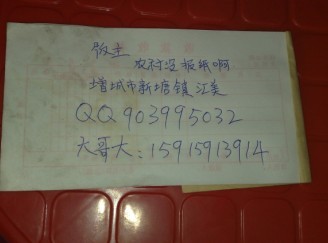 版主
农村没报纸啊
增城市新塘镇江美
QQ903995032
大哥大:15915913914